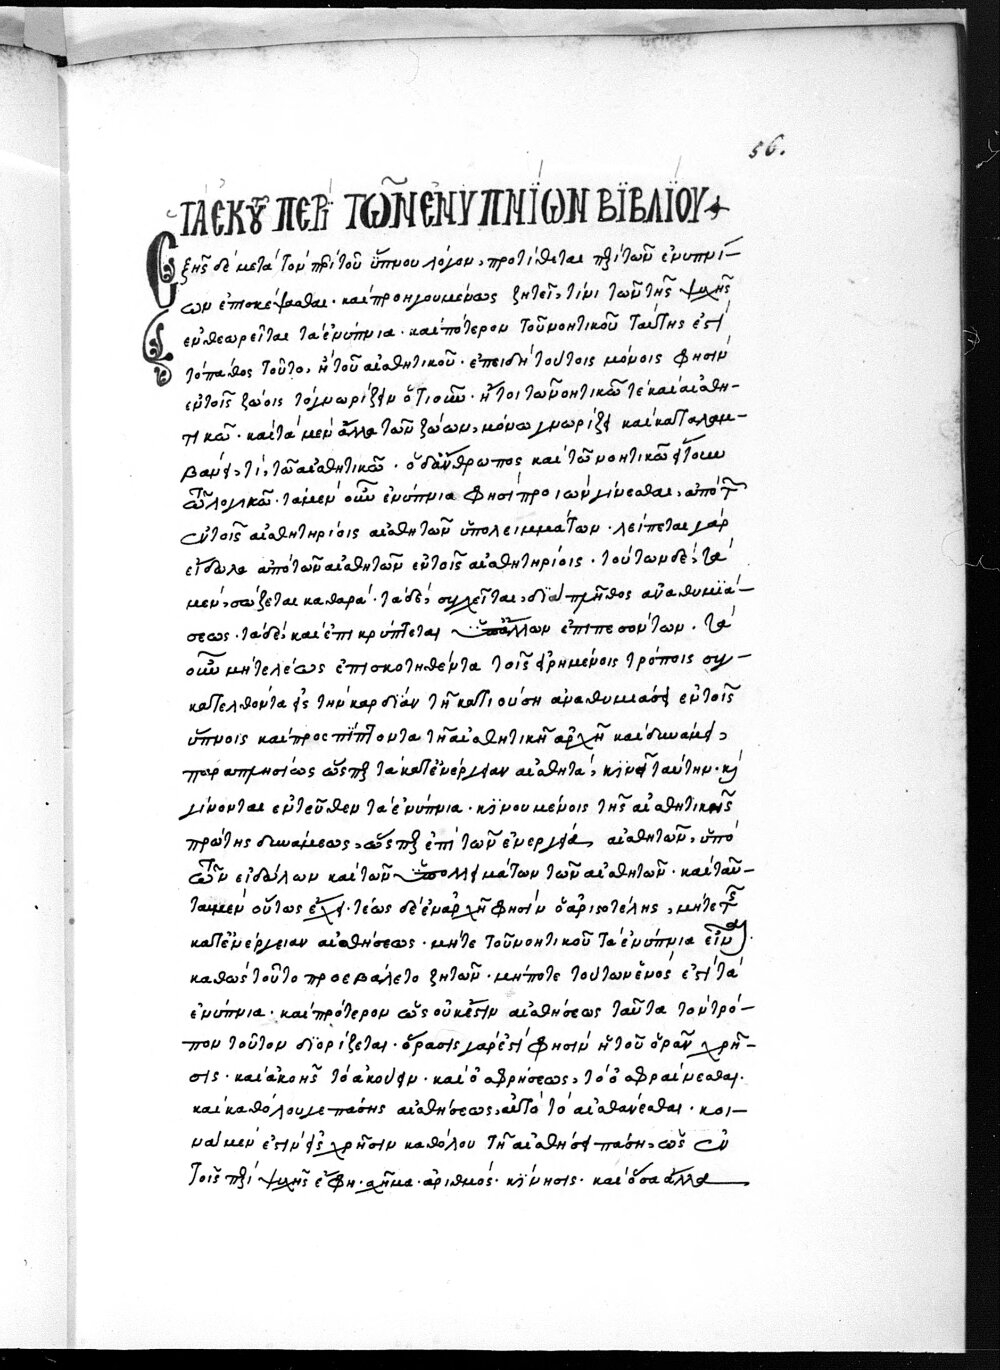 56.
ΤΑ ΕΚ ΤΟΥ ΠΕΡΙ ΤΩΝ ΕΝΥΠΝΙΩΝ ΒΙΒΛΙΟΥ
Ἑξῆς δὲ μετὰ τὸν περὶ τοῦ ὕπνου λόγον, προτίθεται περὶ τῶν ἐνυπνί-
ων ἐπισκέψασθαι. καὶ προηγουμένως ζητεῖ, τίνι τῶν τῆς ψυχῆς
ἐνθεωρεῖται τὰ ἐνύπνια. καὶ πότερον τοῦ νοητικοῦ ταύτης ἐστὶ
τὸ πάθος τοῦτο, ἢ τοῦ αἰσθητικοῦ. ἐπειδὴ τούτοις μόνοις φησὶν
ἐν τοῖς ζώοις τὸ γνωρίζειν ὁτιοῦν. ἤτοι τῶ νοητικῶ τὲ καὶ αἰσθη-
τικῶ. καὶ τὰ μὲν ἄλλα τῶν ζώων, μόνω γνωρίζει καὶ καταλαμ-
βάνει, τί, τῶ αἰσθητικῶ. ὁ δ' ἄνθρωπος καὶ τῶ νοητικῶ ἤτοι
τῶ λογικῶ. τὰ μὲν οὖν ἐνύπνια φησὶ προϊὼν γίνεσθαι, ἀπὸ τῶν
ἐν τοῖς αἰσθητηρίοις αἰσθητῶν ὑπολειμμάτων. λείπεται γὰρ
εἴδωλα ἀπὸ τῶν αἰσθητῶν ἐν τοῖς αἰσθητηρίοις. τούτων δὲ, τὰ
μὲν, σώζεται καθαρά. τὰ δὲ, συγχεῖται, διὰ πλῆθος ἀναθυμιά-
σεως. τὰ δὲ, καὶ ἐπικρύπτεται ὑπ' ἄλλων ἐπιπεσόντων. τὰ
οὖν μὴ τελέως ἐπισκοτηθέντα τοῖς εἰρημένοις τρόποις συγ-
κατελθόντα εἰς τὴν καρδίαν τῆ κατιούση ἀναθυμιάσει ἐν τοῖς
ὕπνοις καὶ προσπίπτοντα τῆ αἰσθητικῆ ἀρχῆ καὶ δυνάμει,
παραπλησίως ὥσπερ τὰ κατ' ἐνέργειαν αἰσθητὰ, κινεῖ ταύτην. καὶ
γίνονται ἐντεῦθεν τὰ ἐνύπνια. κινουμένοις τῆς αἰσθητικῆς
πρώτης δυνάμεως, ὥσπερ ἐπὶ τῶν ἐνεργεία αἰσθητῶν, ὑπὸ
τῶν εἰδώλων καὶ τῶν ὑπολλειμάτων τῶν αἰσθητῶν. καὶ ταῦ-
τα μὲν οὕτως ἔχει. τέως δὲ ἐν ἀρχῆ φησὶν ὁ ἀριστοτέλης, μήτε τῆς
κατ' ἐνέργειαν αἰσθήσεως. μήτε τοῦ νοητικοῦ τὰ ἐνύπνια εἶναι.
καθὼς τοῦτο προεβάλετο ζητῶν. μήποτε τούτων ἑνός ἐστὶ τὰ
ἐνύπνια. καὶ πρότερον ὡς οὐκ ἔστιν αἰσθήσεως ταῦτα τὸν τρό-
πον τοῦτον διορίζεται. ὅρασις γάρ ἐστὶ φησὶν ἡ τοῦ ὁρᾶν χρῆ-
σις. καὶ ἀκοῆς τὸ ἀκούειν. καὶ ὀσφρήσεως, τὸ ὀσφραίνεσθαι.
καὶ καθόλου γε πάσης αἰσθήσεως, αὐτὸ τὸ αἰσθάνεσθαι. κοι-
νὰ μέν ἐστιν εἰς χρῆσιν καθόλου τῆ αἰσθήσει πάση, ὡς ἐν
τοῖς περὶ ψυχῆς ἔφη. σχῆμα. ἀριθμός. κίνησις. καὶ ὅσα ἄλλα